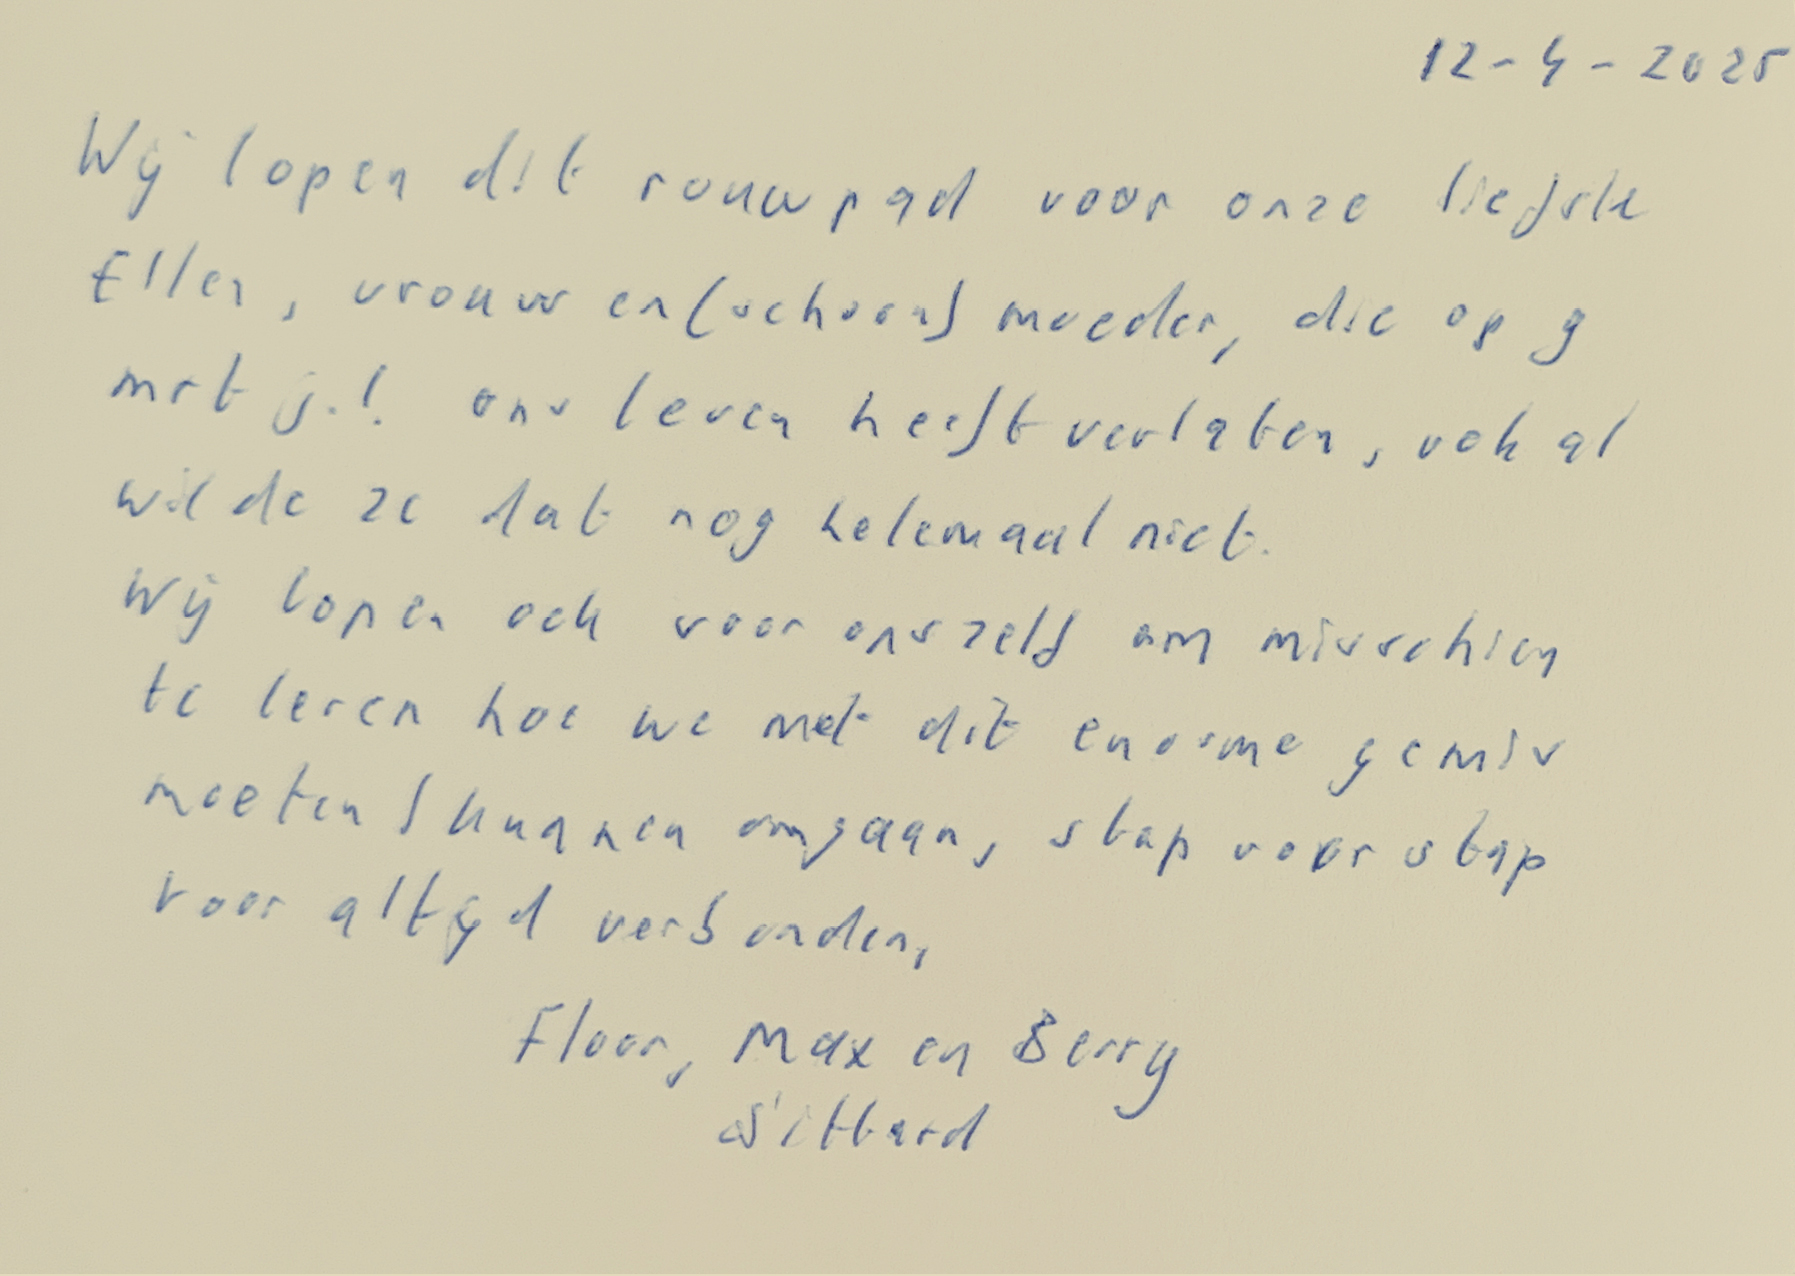 12-4-2025
Wij lopen dit rouwpad voor onze liefste
Ellen, vrouw en (schoon) moeder, die op 9
mrt j.l. ons leven heeft verlaten, ook al
wilde ze dat nog helemaal niet.
Wij lopen ook voor onszelf om misschien
te leren hoe we met dit enorme gemis
moeten / kunnen omgaan, stap voor stap
voor altijd verbonden,
Floor, Max en Berry
Sittard